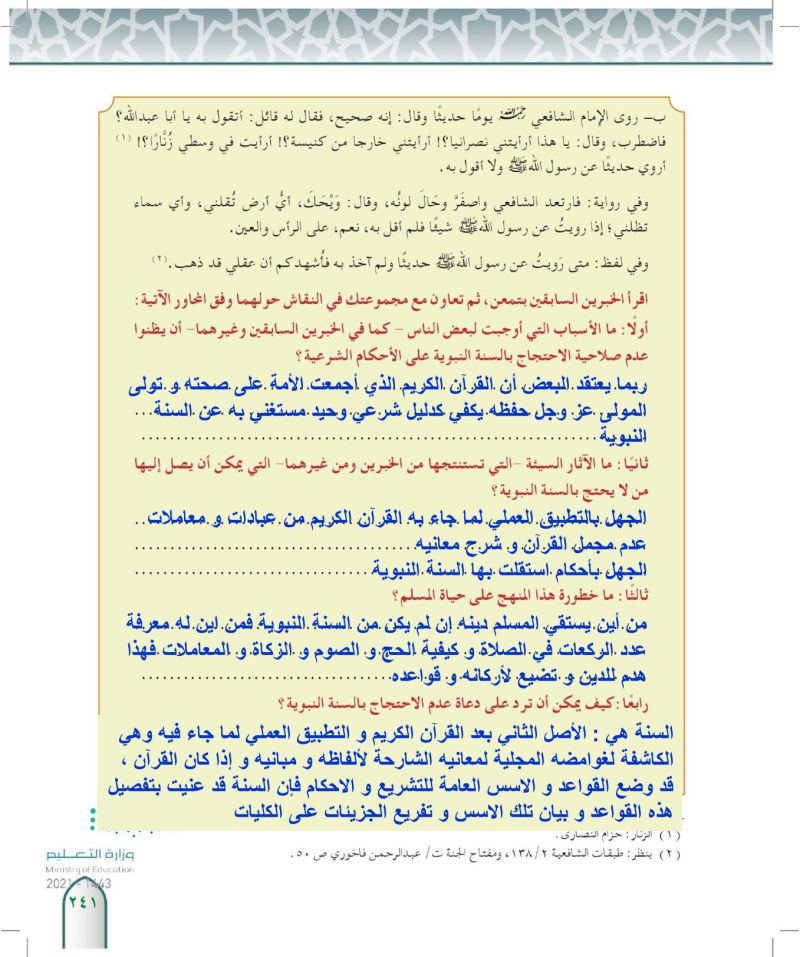 ب– روى الإمام الشافعي رحمه الله يومًا حديثًا وقال: إنه صحيح، فقال له قائل: أتقول به يا أبا عبدالله؟
فاضطرب، وقال: يا هذا أرأيتني نصرانيا؟! أرأيتني خارجا من كنيسة؟! أرأيت في وسطي زُنَّارًا؟! (١)
أروي حديثًا عن رسول اللهﷺ ولا أقول به.
وفي رواية: فارتعد الشافعي واصفَرَّ وحَالَ لونُه، وقال: وَيْحَكَ، أيُّ أرض تُقلني، وأي سماء
تظلني؛ إذا رويتُ عن رسول اللهﷺ شيئًا فلم أقل به، نعم، على الرأس والعين.
وفي لفظ: متى رَويتُ عن رسول اللهﷺ حديثًا ولم آخذ به فأُشهدكم أن عقلي قد ذهب. (٢)
اقرأ الخبرين السابقين بتمعن، ثم تعاون مع مجموعتك في النقاش حولهما وفق المحاور الآتية:
أولًا: ما الأسباب التي أوجبت لبعض الناس – كما في الخبرين السابقين وغيرهما– أن يظنوا
عدم صلاحية الاحتجاج بالسنة النبوية على الأحكام الشرعية؟
ربما يعتقد البعض أن القرآن الكريم الذي أجمعت الأمة على صحته و تولى
المولى عز وجل حفظه يكفي كدليل شرعي وحيد مستغني به عن السنة
النبوية
ثانيًا: ما الآثار السيئة –التي تستنتجها من الخبرين ومن غيرهما– التي يمكن أن يصل إليها
من لا يحتج بالسنة النبوية؟
الجهل بالتطبيق العملي لما جاء به القرآن الكريم من عبادات و معاملات
عدم مجمل القرآن و شرح معانيه
الجهل بأحكام استقلت بها السنة النبوية
ثالثًا: ما خطورة هذا المنهج على حياة المسلم؟
من أين يستقي المسلم دينه إن لم يكن من السنة النبوية فمن اين له معرفة
عدد الركعات في الصلاة و كيفية الحج و الصوم و الزكاة و المعاملات فهذا
هدم للدين و تضيع لأركانه و قواعده
رابعًا: كيف يمكن أن ترد على دعاة عدم الاحتجاج بالسنة النبوية؟
السنة هي : الأصل الثاني بعد القرآن الكريم و التطبيق العملي لما جاء فيه وهي
الكاشفة لغوامضه المجلية لمعانيه الشارحة لألفاظه و مبانيه و إذا كان القرآن ،
قد وضع القواعد و الاسس العامة للتشريع و الاحكام فإن السنة قد عنيت بتفصيل
هذه القواعد و بيان تلك الاسس و تفريع الجزيئات على الكليات
(١) الزنار: حزام النصارى.
(٢) ينظر: طبقات الشافعية ١٣٨/٢، ومفتاح الجنة ت/ عبدالرحمن فاخوري ص ٥٠.
وزارة التعليم
Ministry of Education
2021 - 1443
٢٤١